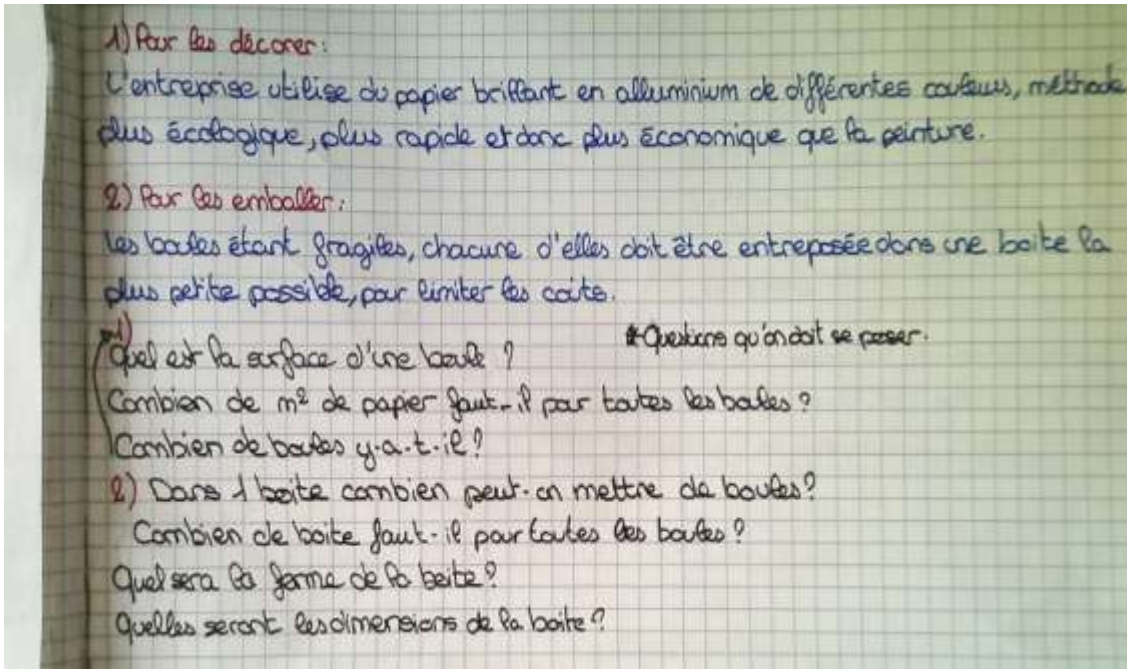 1) Pour les décorer:
L'entreprise utilise du papier brillant en alluminium de différentes couleurs, méthode
plus écologique, plus rapide et donc plus économique que la peinture.
2) Pour les emballer:
Les boules étant fragiles, chacune d'elles doit être entreposée dans une boite la
plus petite possible, pour limiter les coûts.
1)
*Questions qu'on doit se poser.
Quel est la surface d'une boule ?
Combien de m² de papier faut-il pour toutes les boules ?
Combien de boules y.a.t.il ?
2) Dans 1 boite combien peut-on mettre de boules ?
Combien de boite faut-il pour toutes les boules ?
Quel sera la forme de la boite ?
Quelles seront les dimensions de la boite ?